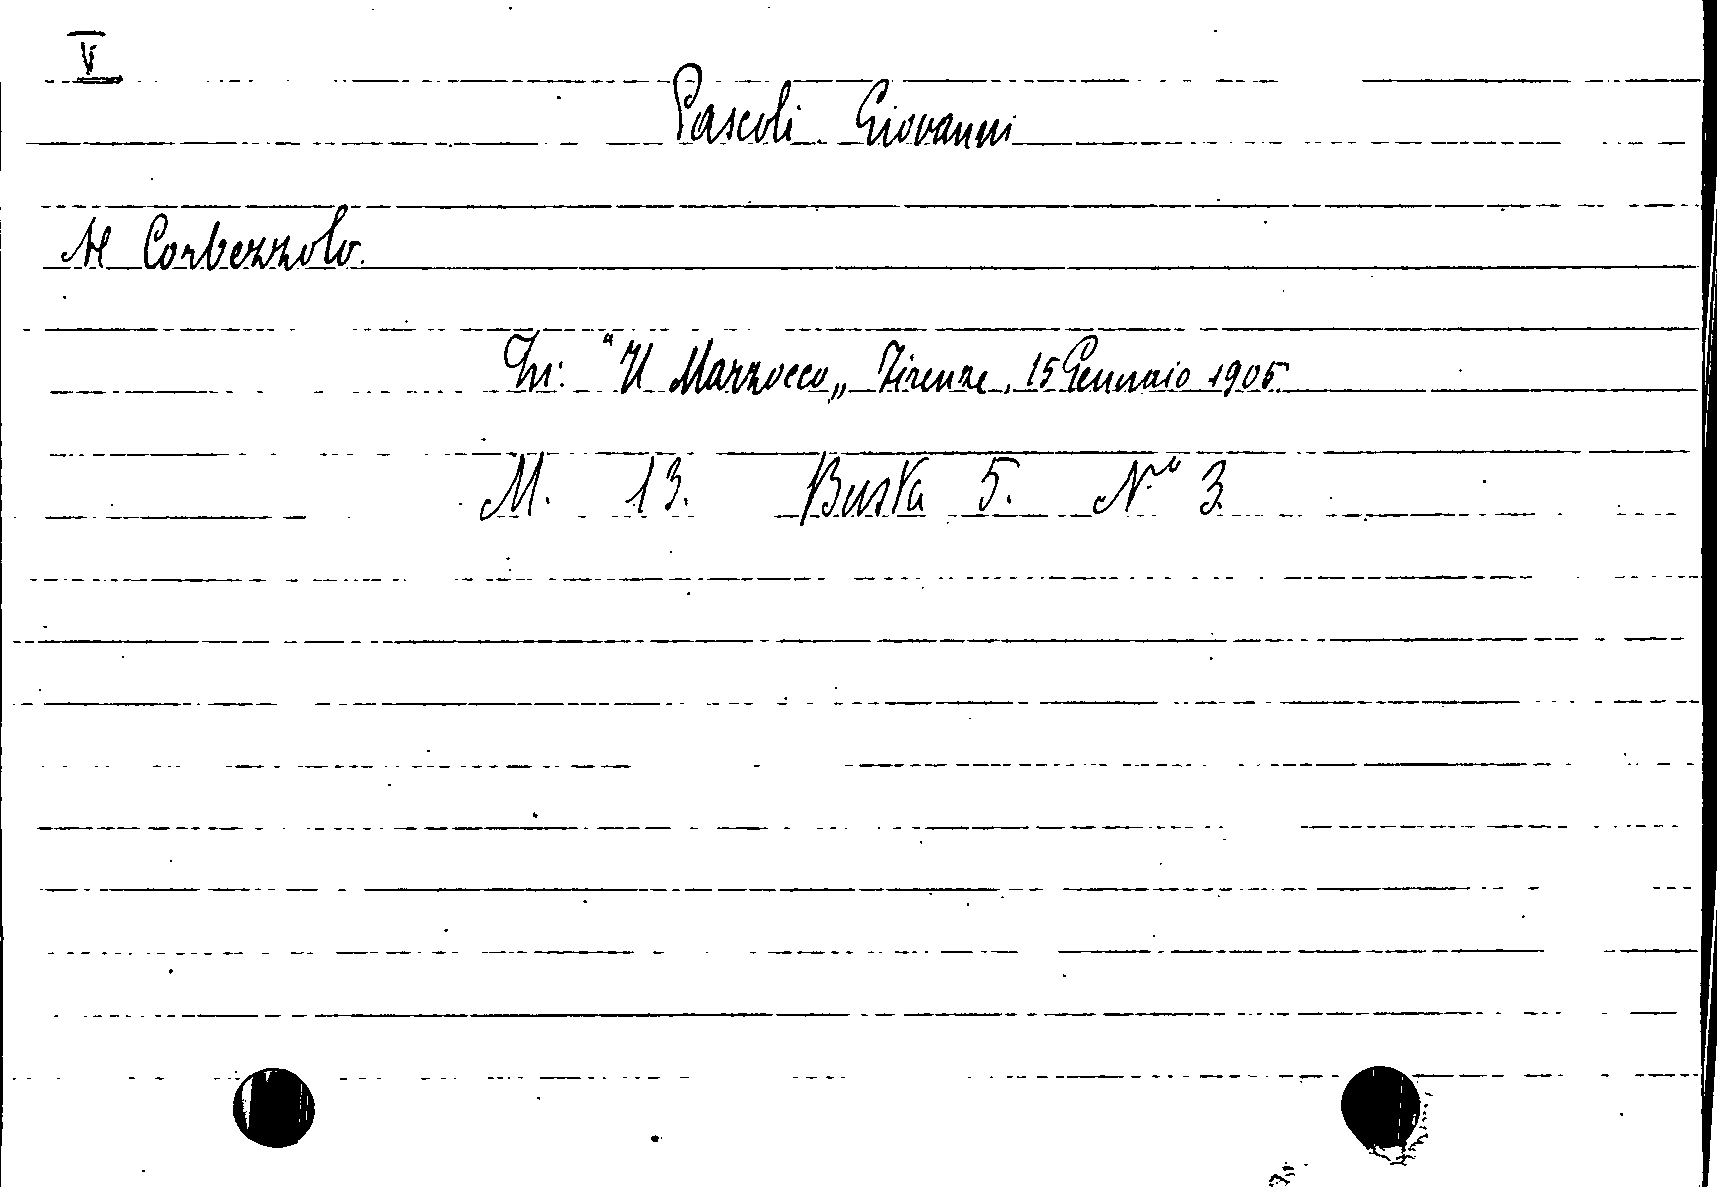 V
Pascoli Giovanni
Al Corbezzolo.
In: "Il Marzocco„ Firenze, 15 Gennaio 1905
M. 13. Busta 5. N.º 3